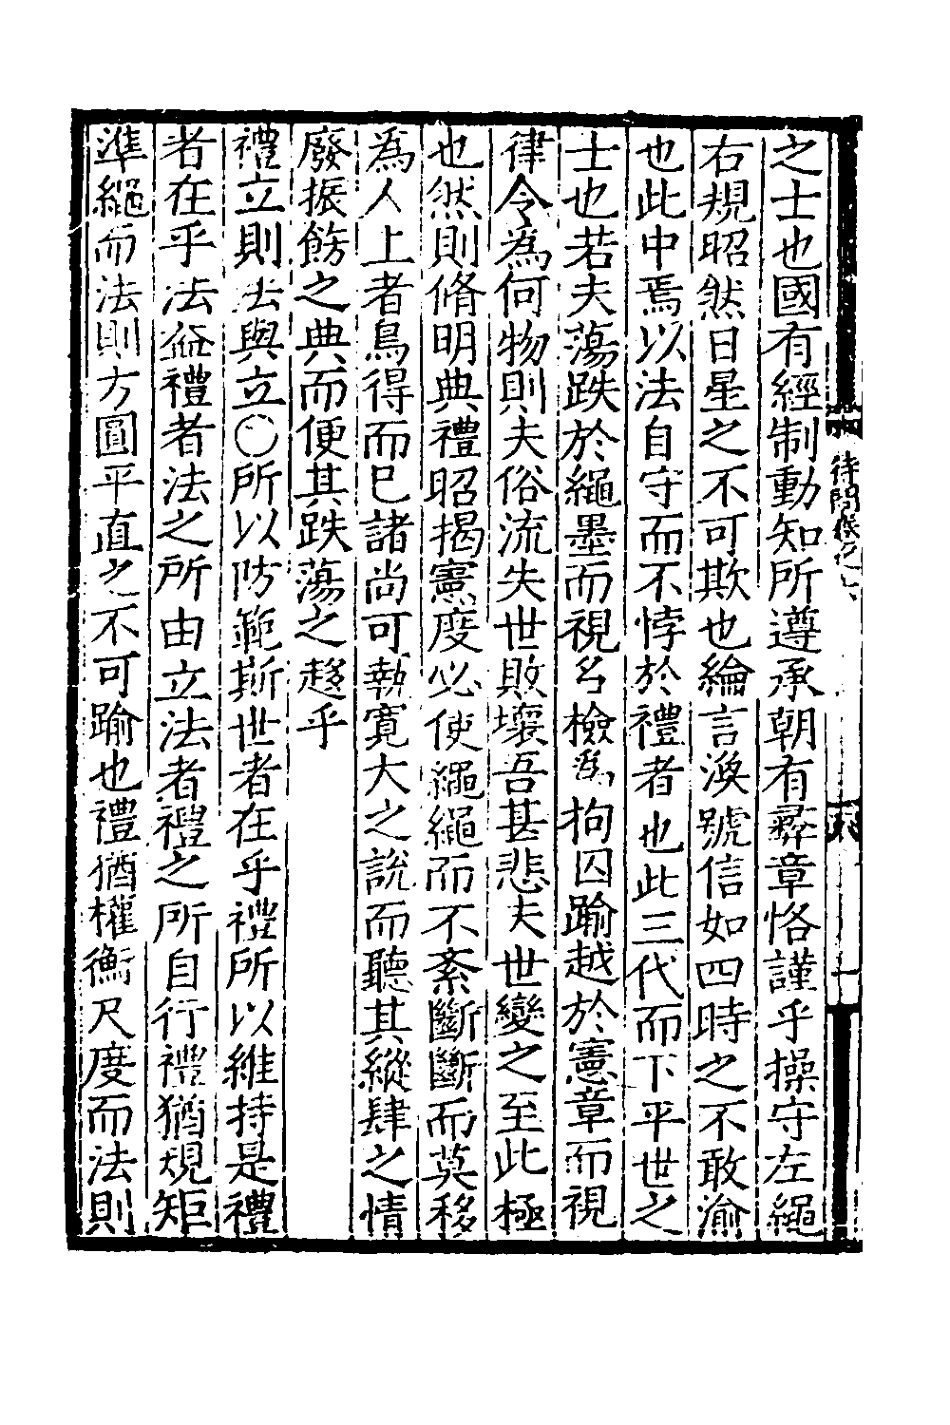 之士也國有經制動知所遵承朝有彞章恪謹乎操守左繩
右規昭然日星之不可欺也綸言渙號信如四時之不敢渝
也此中焉以法自守而不悖於禮者也此三代而下平世之
士也若夫蕩跌於繩墨而視名檢為拘囚踰越於憲章而視
律令為何物則夫俗流失世敗壞吾甚悲夫世變之至此極
也然則脩明典禮昭揭憲度必使繩繩而不紊斷斷而莫移
為人上者烏得而已諸尚可執寬大之說而聽其縱肆之情
廢振飭之典而便其跌蕩之趍乎
禮立則法與立〇所以防範斯世者在乎禮所以維持是禮
者在乎法葢禮者法之所由立法者禮之所自行禮猶規矩
準繩而法則方圓平直之不可踰也禮猶權衡尺度而法則
待問卷之六